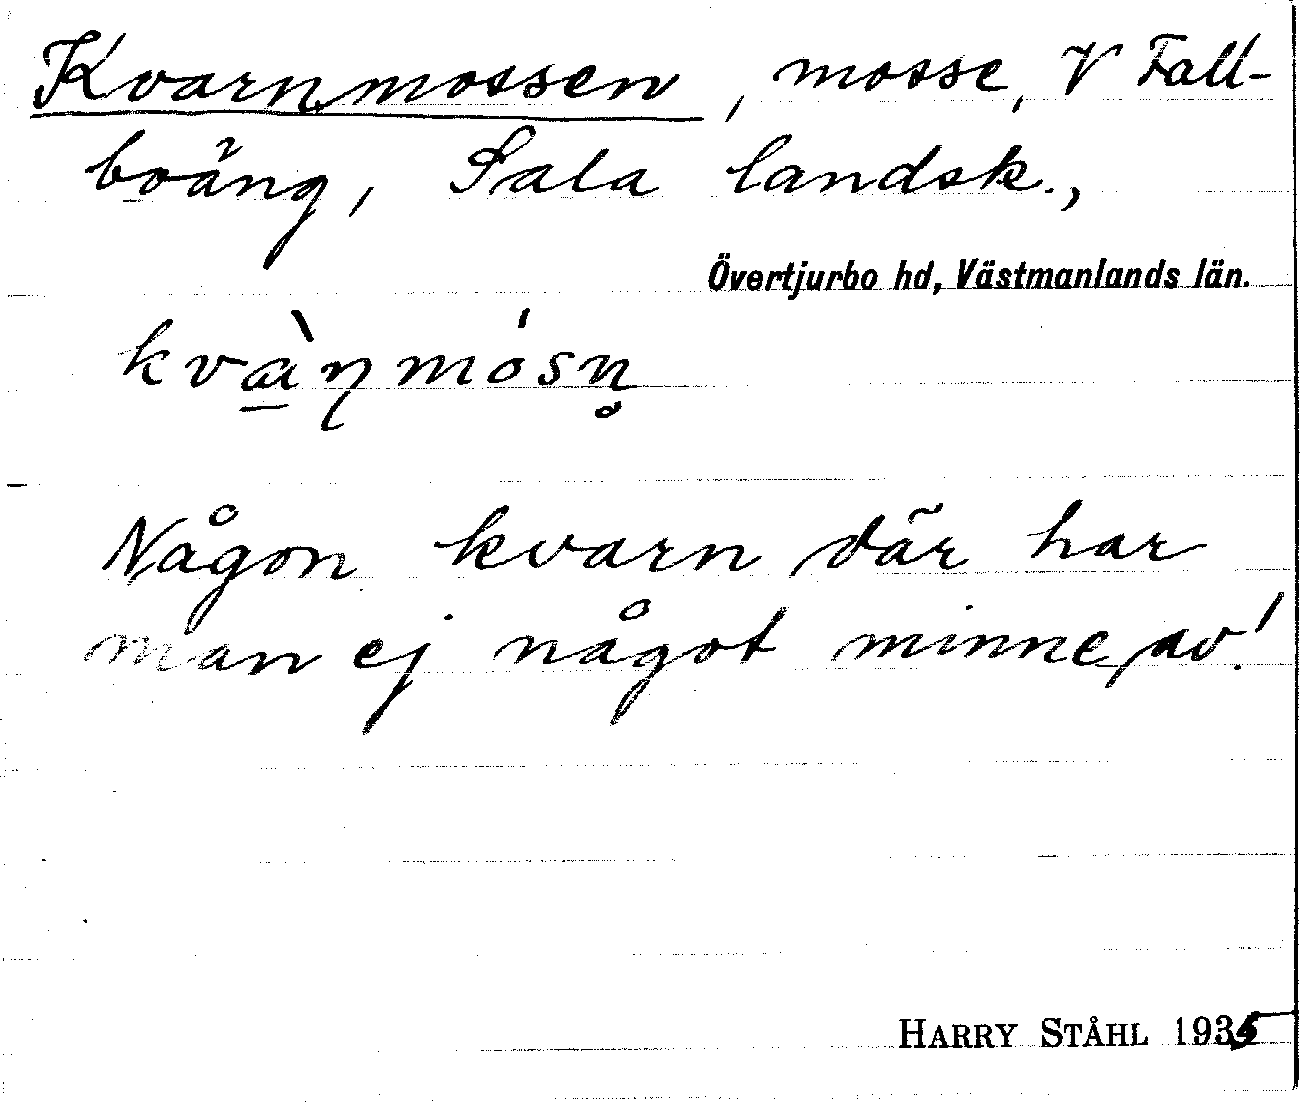 Kvarnmossen, mosse, V Fall-
boäng, Sala landsk.,
Övertjurbo hd, Västmanlands län.
kvàɳmósn̥
Någon kvarn där har
man ej något minne av!
HARRY STÅHL 1935